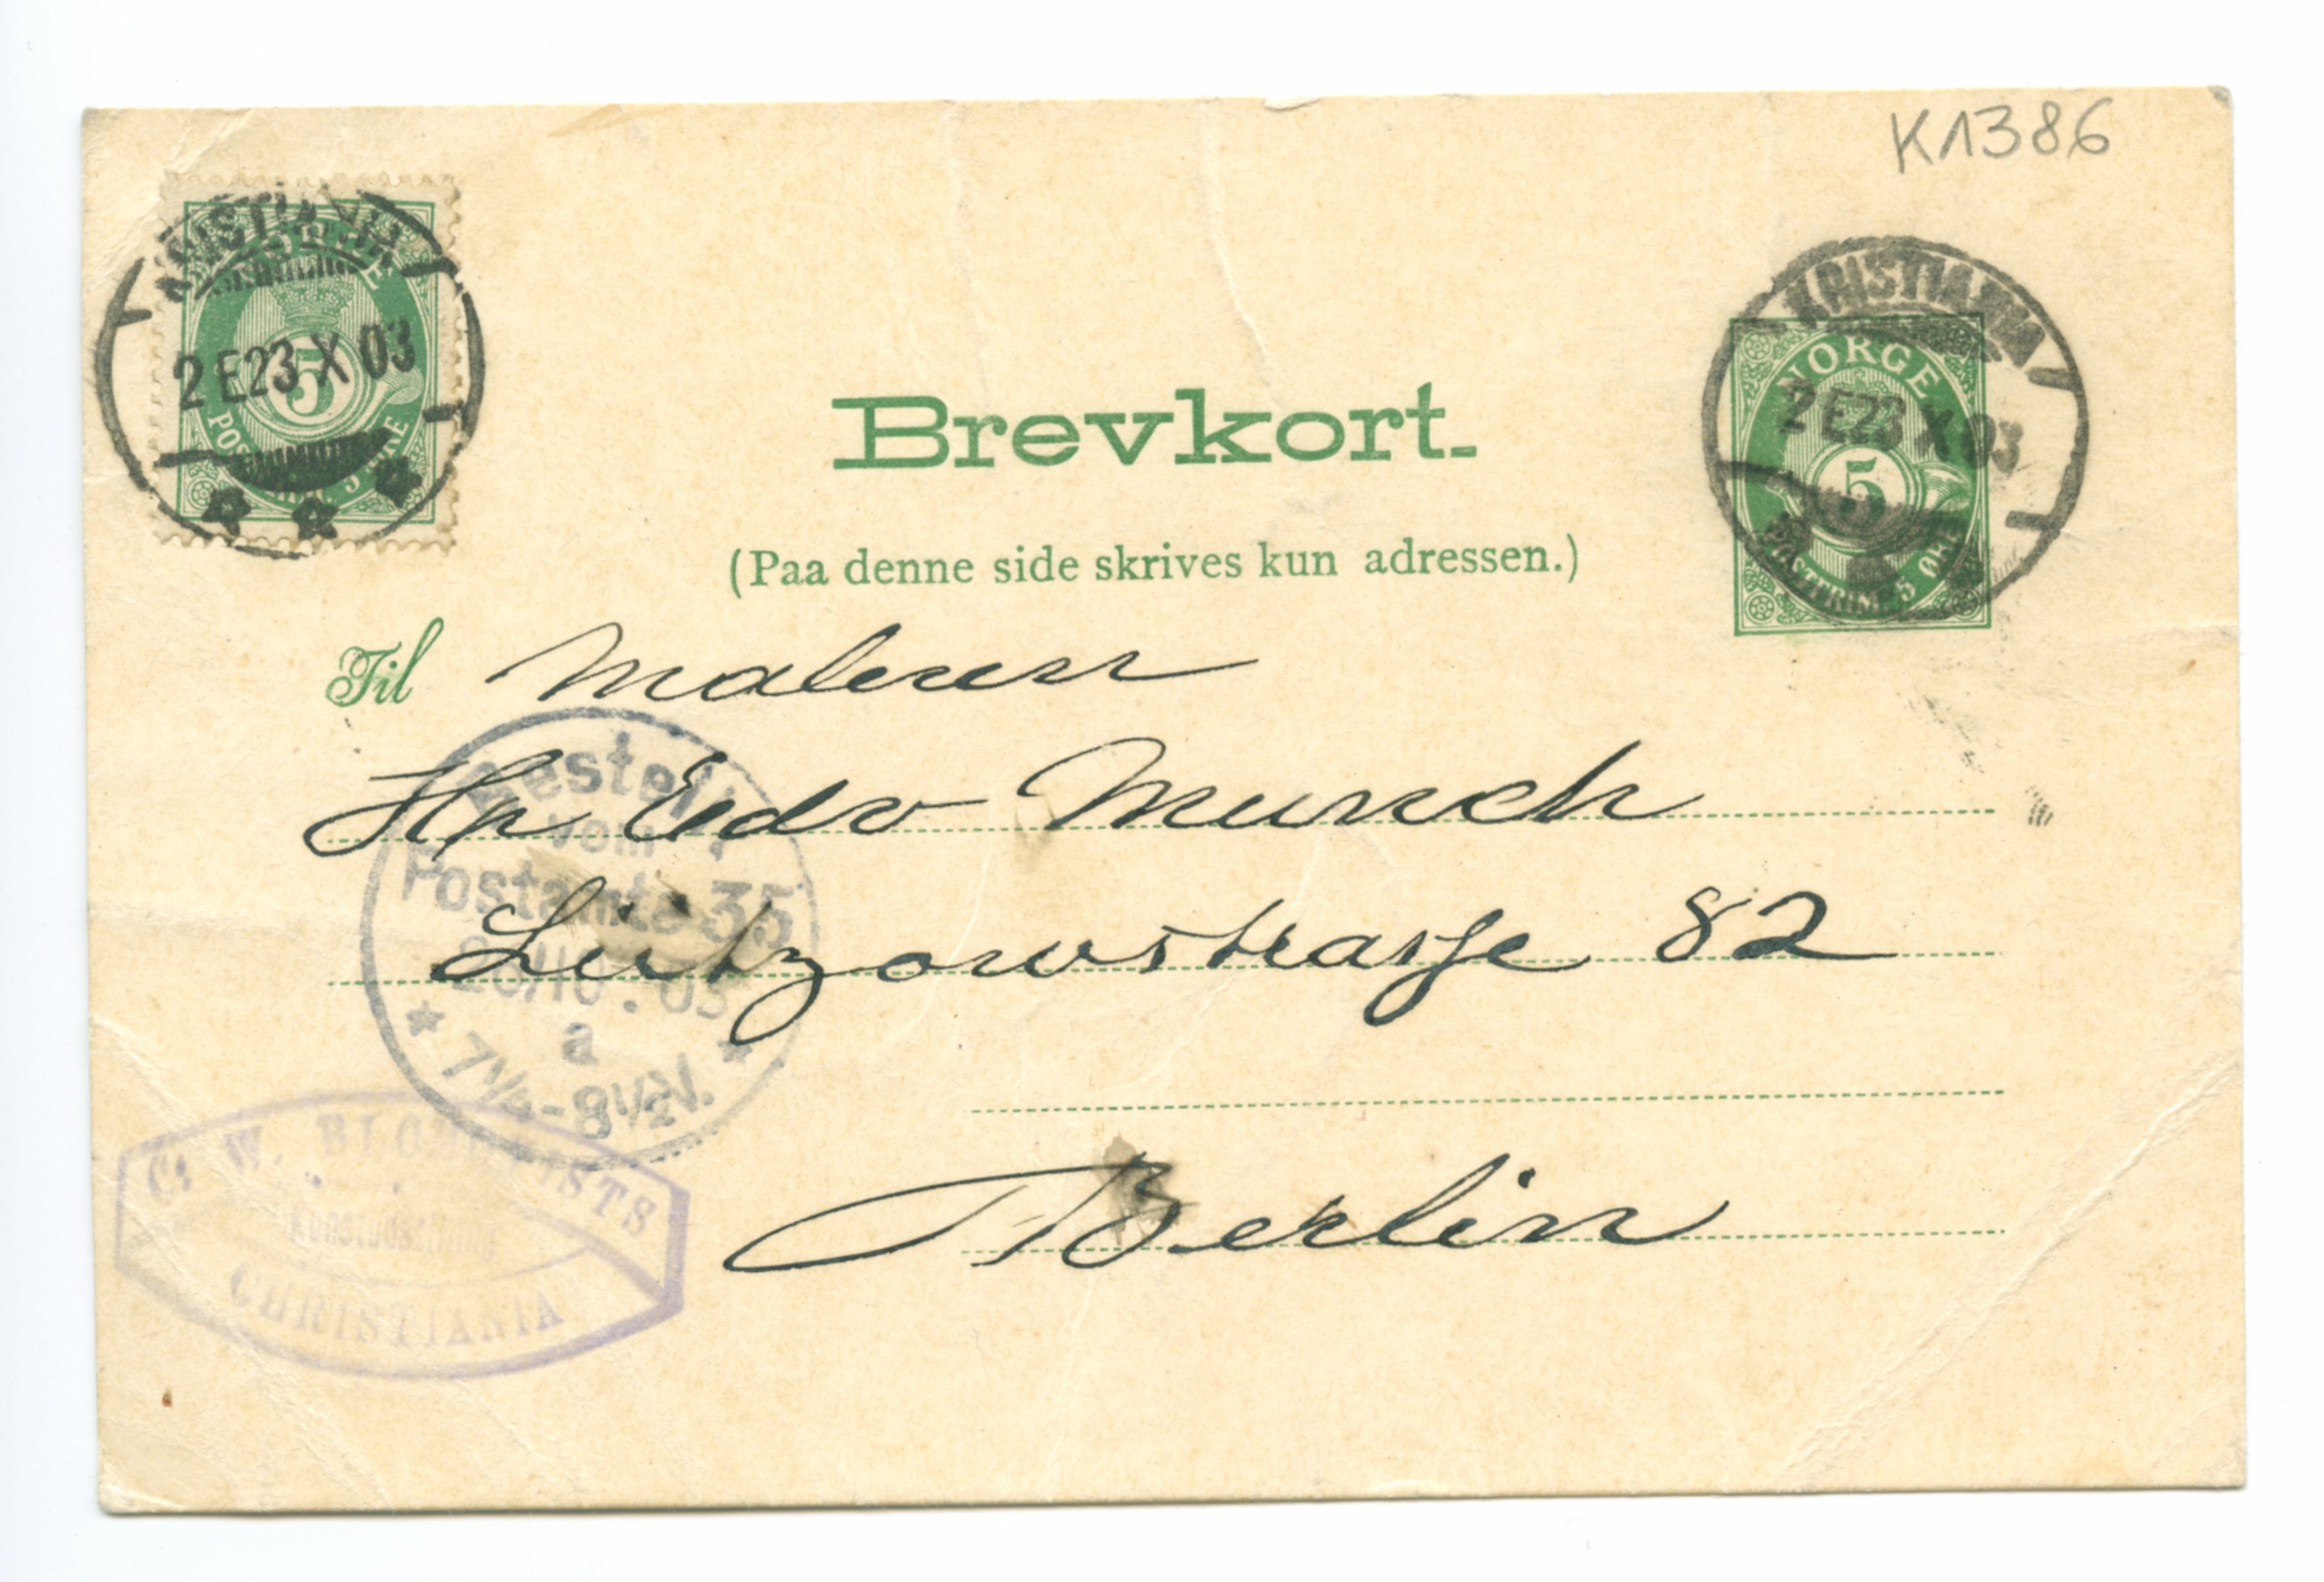 K1386
KRISTIANIA
NORGE
2 E 23 X 03
5
KRISTIANIA
NORGE
2 E 23 X 03
5
POSTFRIM. 5 ØRE
Brevkort.
(Paa denne side skrives kun adressen.)
Til Maleren
Hr Edv Munch
Lützowstrasse 82
Berlin
Bestellt
vom
Postamte 35
10.03
a
7¼-8½V.
C. W. BLOMQVISTS
Kunstudstilling
CHRISTIANIA